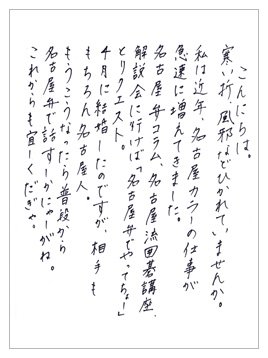 こんにちは。
寒い折、風邪などひかれていませんか。
私は近年、名古屋カラーの仕事が
急速に増えてきました。
名古屋弁コラム、名古屋流囲碁講座、
解説会に行けば「名古屋弁でやってちょー」
とリクエスト。
4月に結婚したのですが、相手も
もちろん名古屋人。
もうこうなったら普段から
名古屋弁で話すーかにゃーがね。
これからも宜しくだぎゃ。